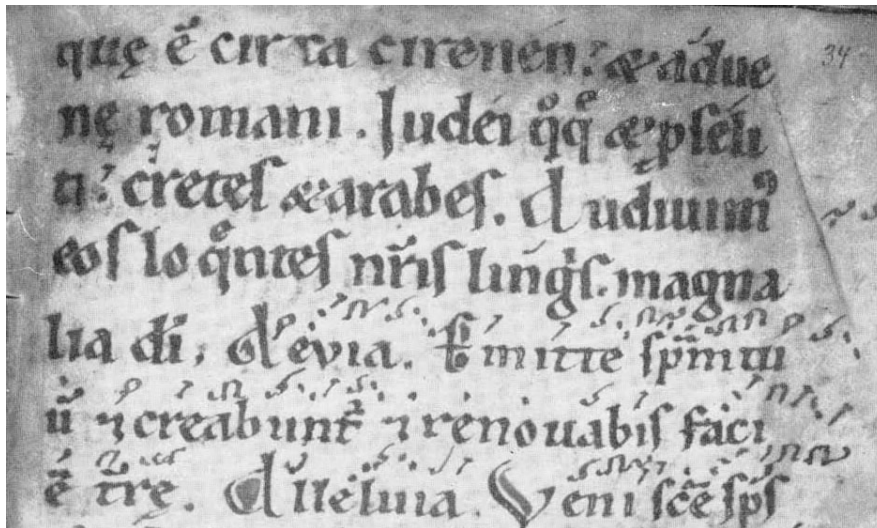 quę ē circa cirenen; & adue 34
nę romani. Iudei qͦqͤ & pseli
ti; cretes & arabes. Audiuimꝰ
eos loqͤntes nr̄is lingis. magna
lia di̅, All'evia. Emitte sp̄m tu
ū ⁊ creabunt᷑ ⁊ renouabis faci
ē tr̄ę. Alleluia. Veni sc̄e sp̄s